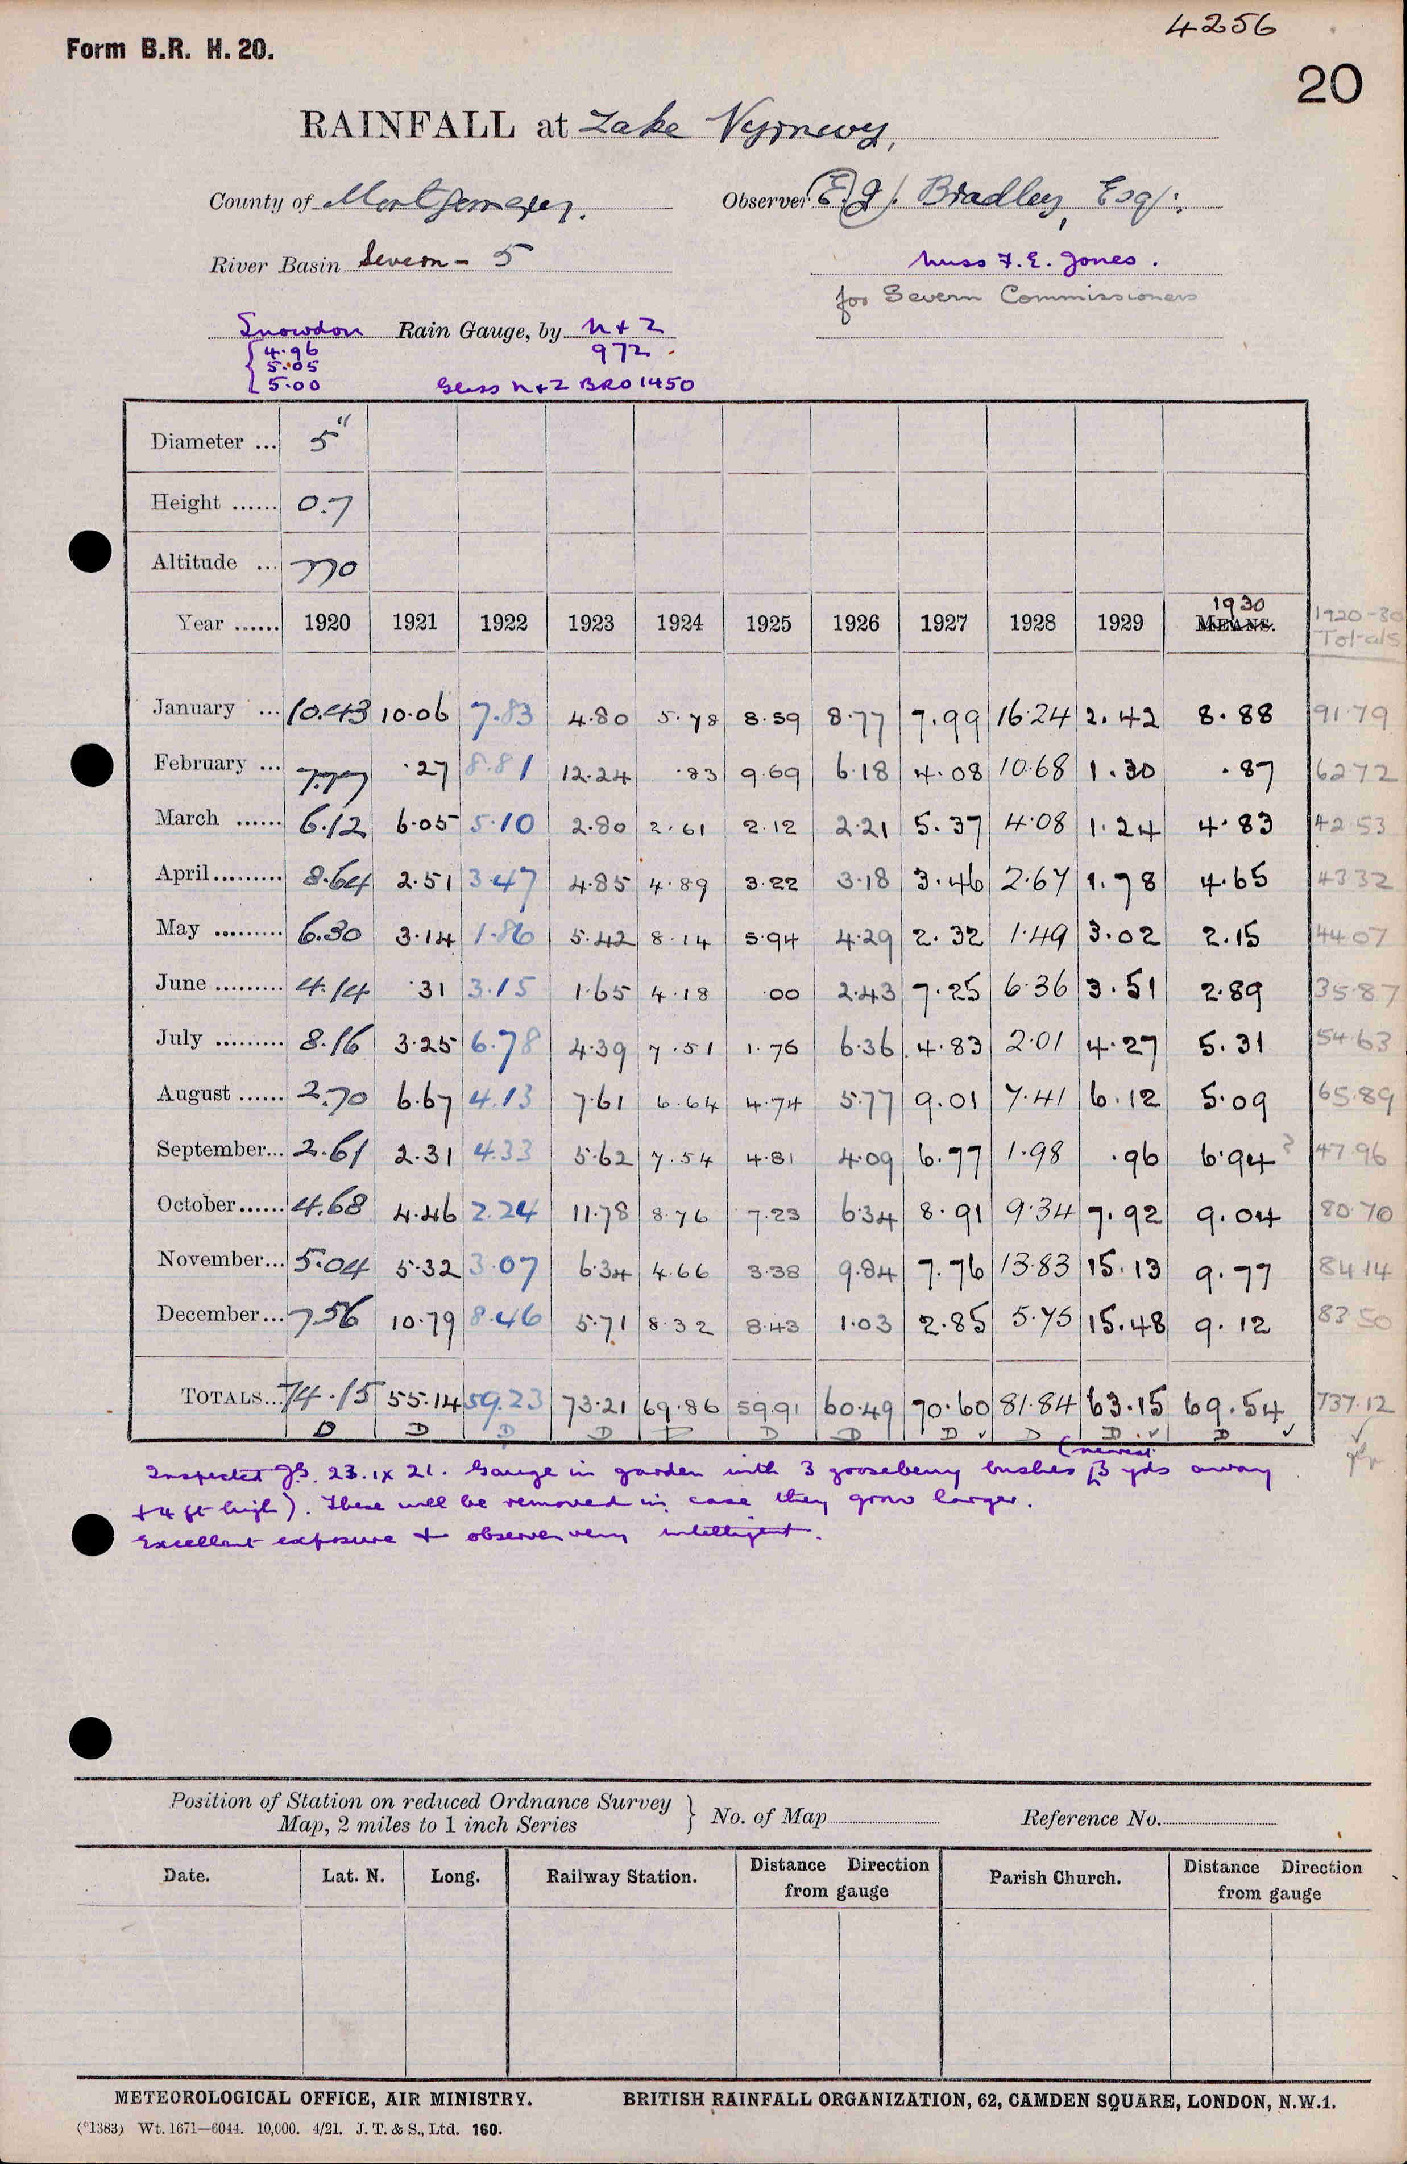 4256
Form B.R. H. 20.
20
RAINFALL at Lake Vyrnwy,
County of Montgomery. Observer (E.J). Bradley, Esq:,
River Basin Severn - 5 Miss F. E. Jones.
for Severn Commissioners
Snowdon Rain Gauge, by N + Z
4.96 972.
5.05
5.00 Glass N+Z BRO 1450
Diameter ... 5"
Height ...... 0.7
Altitude ... 770
Year ...... 1920 1921 1922 1923 1924 1925 1926 1927 1928 1929 1930 MEANS. 1920-30 Totals
January ... 10.43 10.06 7.83 4.80 5.78 8.59 8.77 7.99 16.24 2.42 8.88 91.79
February ... 7.77 .27 8.81 12.24 .83 9.69 6.18 4.08 10.68 1.30 .87 62 72
March ...... 6.12 6.05 5.10 2.80 2.61 2.12 2.21 5.37 4.08 1.24 4.83 42.53
April......... 8.64 2.51 3.47 4.85 4.89 3.22 3.18 3.46 2.67 1.78 4.65 43 32
May ......... 6.30 3.14 1.86 5.42 8.14 5.94 4.29 2.32 1.49 3.02 2.15 44 07
June ......... 4.14 .31 3.15 1.65 4.18 .00 2.43 7.25 6.36 3.51 2.89 35.87
July ......... 8.16 3.25 6.78 4.39 7.51 1.76 6.36 4.83 2.01 4.27 5.31 54 63
August ...... 2.70 6.67 4.13 7.61 6.64 4.74 5.77 9.01 7.41 6.12 5.09 65.89
September... 2.61 2.31 4.33 5.62 7.54 4.81 4.09 6.77 1.98 .96 6.94 ? 47 96
October...... 4.68 4.46 2.24 11.78 8.76 7.23 6.34 8.91 9.34 7.92 9.04 80.70
November... 5.04 5.32 3.07 6.34 4.66 3.38 9.84 7.76 13.83 15.13 9.77 84 14
December... 7.56 10.79 8.46 5.71 8.32 8.43 1.03 2.85 5.75 15.48 9.12 83 50
TOTALS... 74.15 55.14 59.23 73.21 69.86 59.91 60.49 70.60 81.84 63.15 69.54 737.12
D D D D D D D D D D D
Inspected JG. 23.ix 21. Gauge in garden with 3 gooseberry bushes (nearest 3 yds away
+ 4 ft high). These will be removed in case they grow larger.
Excellent exposure + observer very intelligent.
Position of Station on reduced Ordnance Survey Map, 2 miles to 1 inch Series } No. of Map Reference No.
Date. Lat. N. Long. Railway Station. Distance Direction from gauge Parish Church. Distance Direction from gauge
METEOROLOGICAL OFFICE, AIR MINISTRY. BRITISH RAINFALL ORGANIZATION, 62, CAMDEN SQUARE, LONDON, N.W.1.
(*1383) Wt. 1671—6044. 10,000. 4/21. J. T. & S., Ltd. 160.